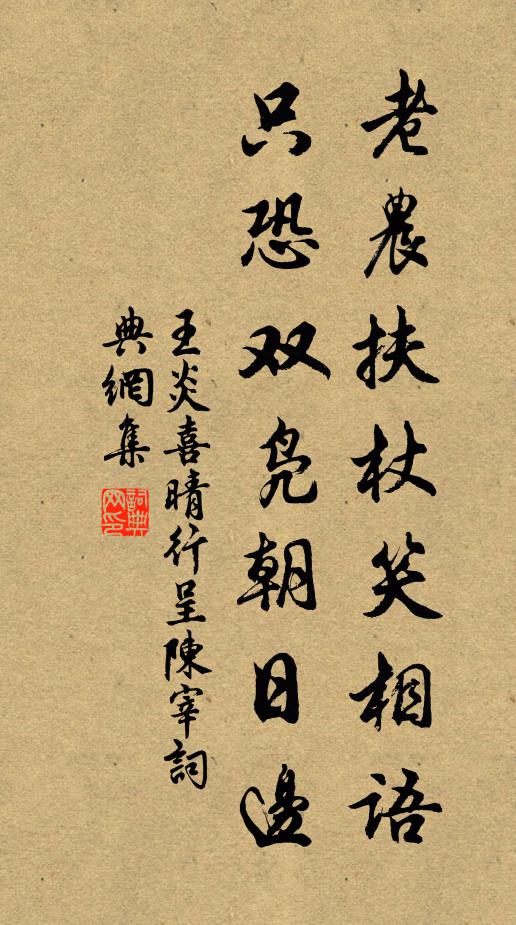 老農扶杖笑相語
只恐双凫朝日邊
王炎喜晴行呈陳宰詞
典網集
詞典網印